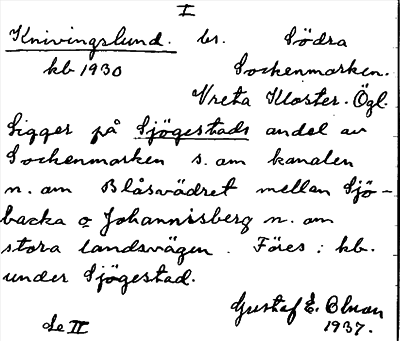 I
Knivingslund. br. Södra
kb 1930 Sockenmarken.
Vreta Kloster. Ögl.
Ligger på Sjögestads andel av
Sockenmarken s. om kanalen
n. om Blåsvädret mellan Sjö-
backa o Johannisberg n. om
stora landsvägen. Föres i kb.
under Sjögestad.
Gustaf E.
Se II 1937.